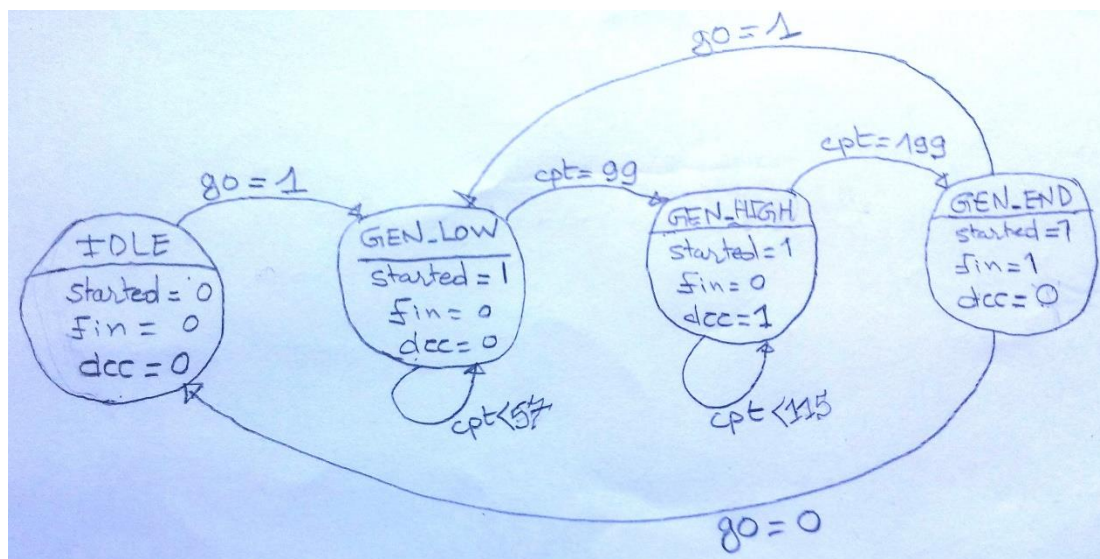 go=1
go=1
cpt=99
cpt=199
IDLE
started=0
fin=0
dcc=0
GEN_LOW
started=1
fin=0
dcc=0
cpt<57
GEN_HIGH
started=1
fin=0
dcc=1
cpt<115
GEN_END
started=1
fin=1
dcc=0
go=0